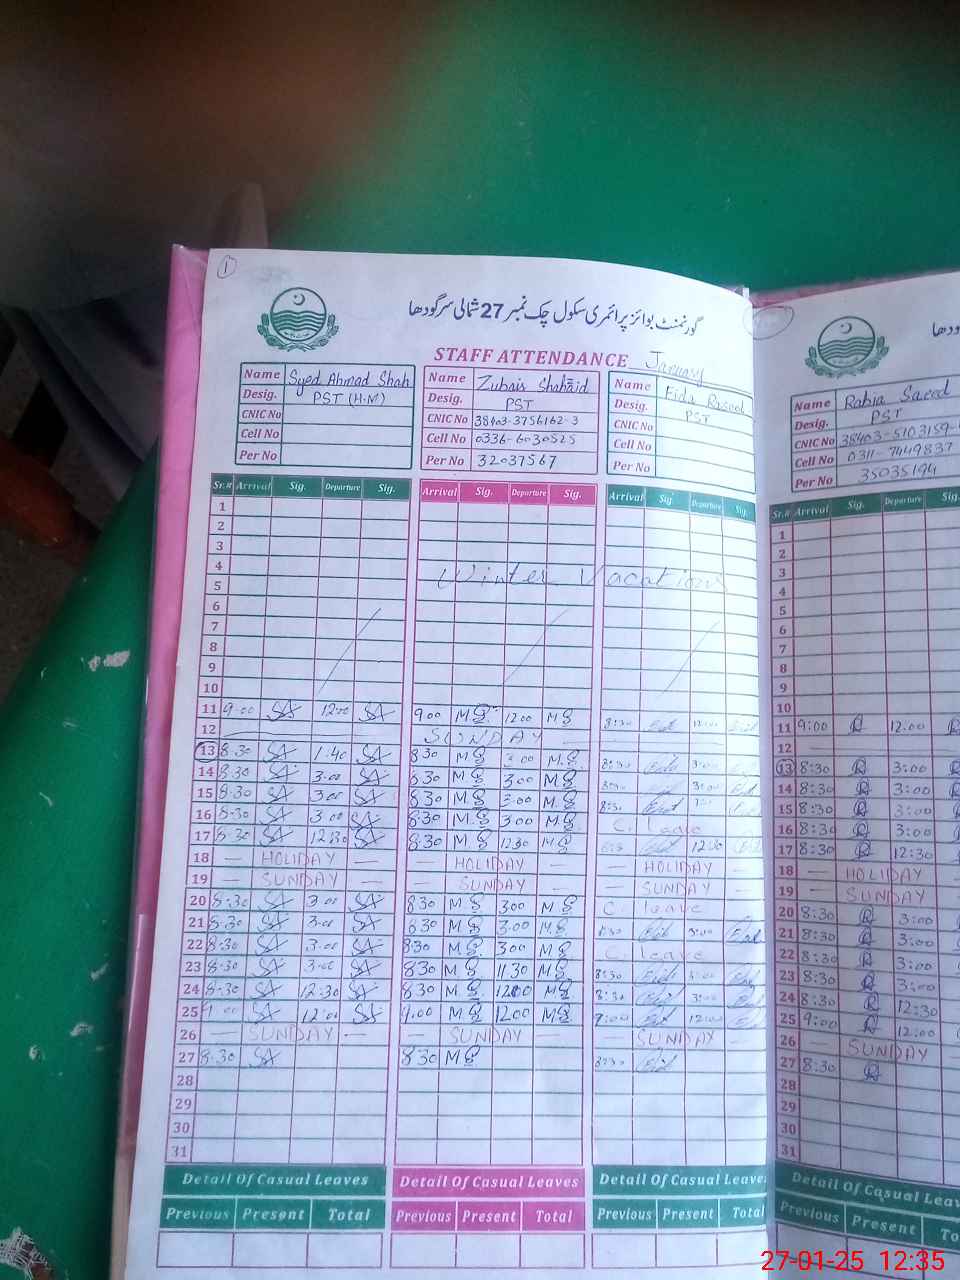 1
گورنمنٹ بوائز پرائمری سکول چک نمبر 27 شمالی سرگودھا
STAFF ATTENDANCE January
Name Syed Ahmad Shah
Desig. PST (H.M)
CNIC No
Cell No
Per No
Name Zubair Shahid
Desig. PST
CNIC No 38403-3756162-3
Cell No 0336-6030525
Per No 32037567
Name Fida Rasool
Desig. PST
CNIC No
Cell No
Per No
Name Rabia Saeed
Desig. PST
CNIC No 38403-5103159-
Cell No 0311-7449837
Per No 35035194
Sr.# Arrival Sig. Departure Sig. Arrival Sig. Departure Sig. Arrival Sig Departure Sig. Sr.# Arrival Sig. Departure Sig.
1 1
2 2
3 3
4 Winter Vacations 4
5 5
6 6
7 7
8 8
9 9
10 10
11 9.00 SA 12.00 SA 9.00 M.S 12.00 M.S 8:30 12:00 11 9:00 R 12.00
12 SUNDAY 12
13 8.30 SA 1.40 SA 8.30 M.S 3.00 M.S 8:30 3:00 13 8:30 R 3:00
14 8.30 SA 3.00 SA 8.30 M.S 3.00 M.S 8:30 3:00 14 8:30 R 3:00
15 8.30 SA 3.00 SA 8.30 M.S 3.00 M.S 8:30 15 8:30 R 3:00
16 8.30 SA 3.00 SA 8.30 M.S 3.00 M.S C. leave 16 8:30 R 3:00
17 8.30 SA 12:30 SA 8.30 M.S 12.30 M.S 12:30 17 8:30 R 12:30
18 — HOLIDAY — — HOLIDAY — — HOLIDAY — 18 — HOLIDAY —
19 — SUNDAY — — SUNDAY — — SUNDAY — 19 — SUNDAY —
20 8.30 SA 3.00 SA 8.30 M.S 3.00 M.S C. leave 20 8:30 R 3:00
21 8.30 SA 3.00 SA 8.30 M.S 3.00 M.S 8:30 3:00 21 8:30 R 3:00
22 8.30 SA 3.00 SA 8.30 M.S 3.00 M.S C. leave 22 8:30 R 3:00
23 8.30 SA 3.00 SA 8.30 M.S 11.30 M.S 8:30 3:00 23 8:30 R 3:00
24 8.30 SA 12.30 SA 8.30 M.S 12.00 M.S 8:30 3:00 24 8:30 R 12:30
25 9.00 SA 12:00 SA 9.00 M.S 12.00 M.S 9:00 12:00 25 9:00 R 12:00
26 — SUNDAY — — SUNDAY — — SUNDAY — 26 — SUNDAY
27 8.30 SA 8.30 M.S 8:30 27 8:30 R
28 28
29 29
30 30
31 31
Detail Of Casual Leaves Detail Of Casual Leaves Detail Of Casual Leaves Detail Of Casual Leav
Previous Present Total Previous Present Total Previous Present Total Previous Present To
27-01-25 12:35